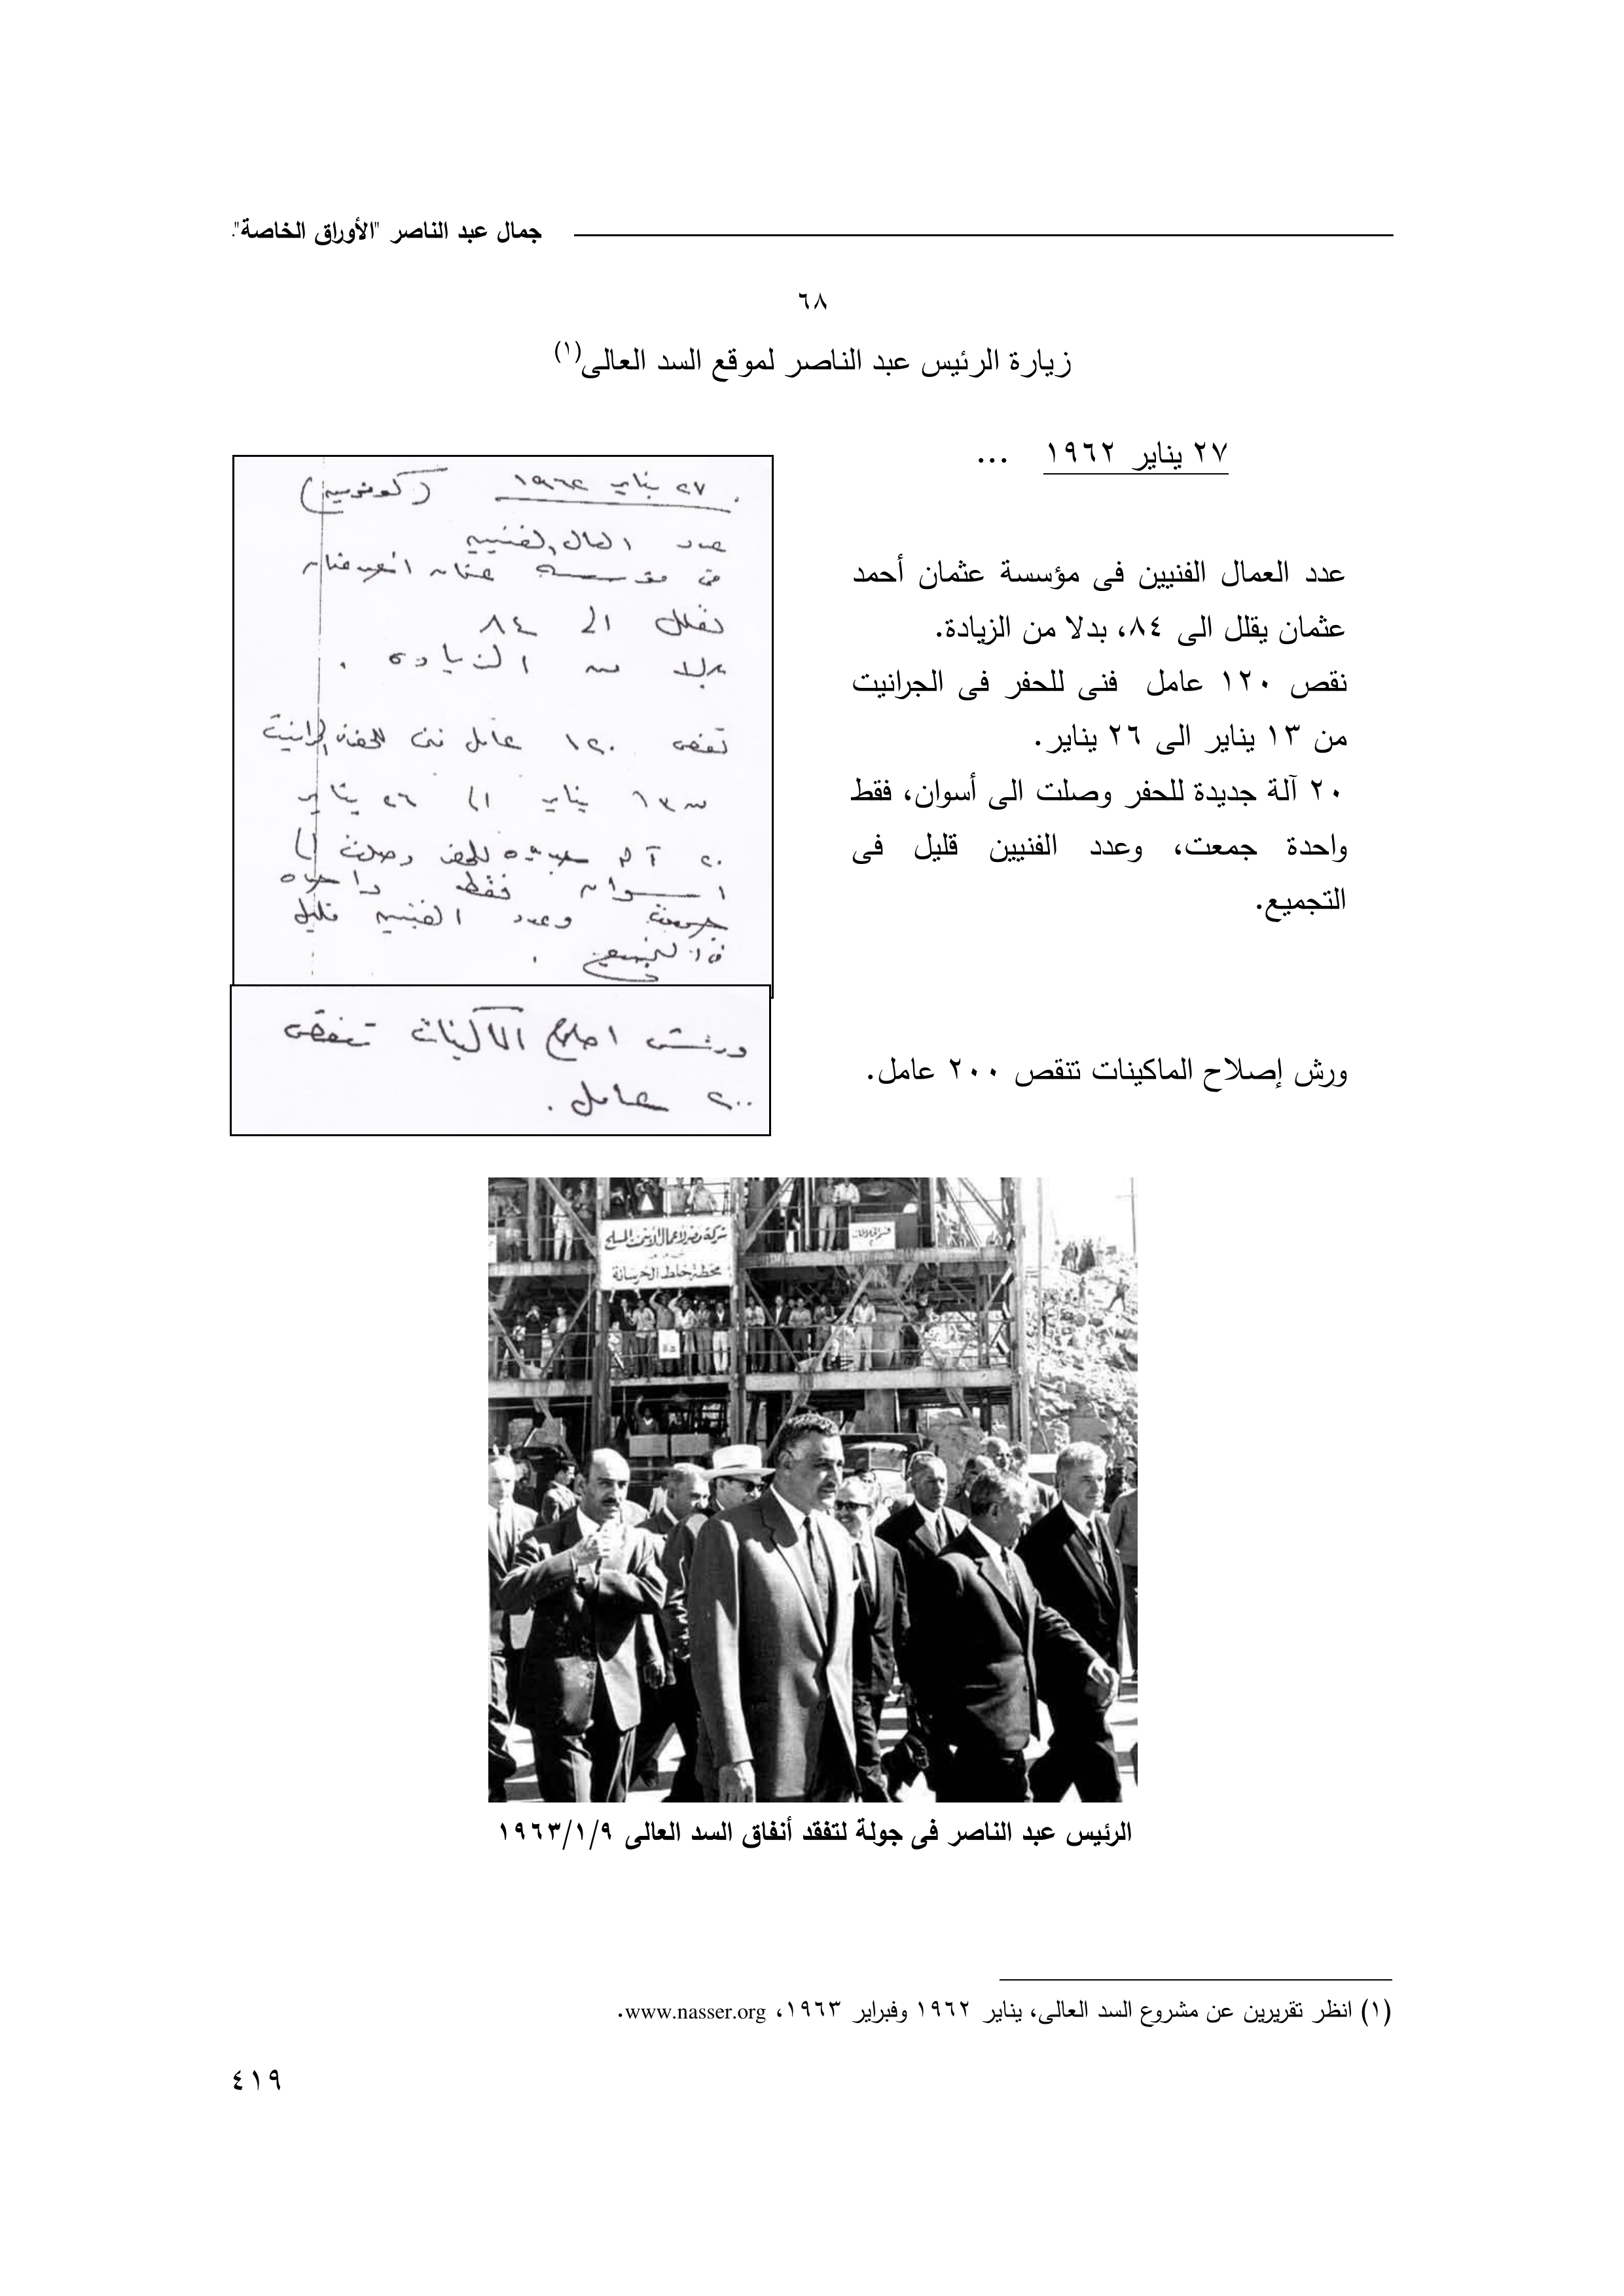 جمال عبد الناصر "الأوراق الخاصة".
٦٨
زيارة الرئيس عبد الناصر لموقع السد العالى(١)
٢٧ يناير ١٩٦٢ ...
عدد العمال الفنيين فى مؤسسة عثمان أحمد
عثمان يقلل الى ٨٤، بدلا من الزيادة.
نقص ١٢٠ عامل فنى للحفر فى الجرانيت
من ١٣ يناير الى ٢٦ يناير.
٢٠ آلة جديدة للحفر وصلت الى أسوان، فقط
واحدة جمعت، وعدد الفنيين قليل فى
التجميع.
ورش إصلاح الماكينات تنقص ٢٠٠ عامل.
٢٧ يناير ١٩٦٢
عدد العمال الفنيين
فى مؤسسة عثمان احمد عثمان
تقلل الى ٨٤
بدلا من الزيادة .
نقص ١٢٠ عامل فنى للحفر فى الجرانيت
من ١٣ يناير الى ٢٦ يناير
٢٠ آلة جديدة للحفر وصلت الى
اسوان فقط واحدة
جمعت وعدد الفنيين قليل
فى التجميع .
ورش اصلاح الماكينات تنقص
٢٠٠ عامل .
شركة مصر لأعمال الأسمنت المسلح
محطة خلط الخرسانة
الرئيس عبد الناصر فى جولة لتفقد أنفاق السد العالى ١٩٦٣/١/٩
(١) انظر تقريرين عن مشروع السد العالى، يناير ١٩٦٢ وفبراير ١٩٦٣، www.nasser.org.
٤١٩